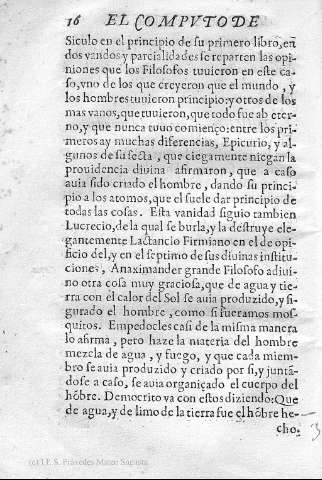 16 EL COMPVTO DE
Siculo en el principio de su primero libro, en
dos vandos y parcialidades se reparten las opi
niones que los Filosofos tuuieron en este ca-
so, vno de los que creyeron que el mundo, y
los hombres tuuieron principio: y otros de los
mas vanos, que tuuieron, que todo fue ab eter-
no, y que nunca tuuo comienço: entre los pri-
meros ay muchas diferencias, Epicurio, y al-
gunos de su secta, que ciegamente niegan la
prouidencia diuina afirmaron, que a caso
auia sido criado el hombre, dando su princi-
pio a los atomos, que el suele dar principio de
todas las cosas. Esta vanidad siguio tambien
Lucrecio, de la qual se burla, y la destruye ele-
gantemente Lactancio Firmiano en el de opi-
ficio dei, y en el septimo de sus diuinas institu-
ciones, Anaximander grande Filosofo adiui-
no otra cosa muy graciosa, que de agua y tie-
rra con el calor del Sol se auia produzido, y fi-
gurado el hombre, como si fueramos mos-
quitos. Empedocles casi de la misma manera
lo afirma, pero haze la materia del hombre
mezcla de agua, y fuego, y que cada miem-
bro se auia produzido y criado por si, y juntã-
dose a caso, se auia organiçado el cuerpo del
hõbre. Democrito va con estos diziendo: Que
de agua, y de limo de la tierra fue el hõbre he-
cho.
(c) I.E.S. Práxedes Mateo Sagasta